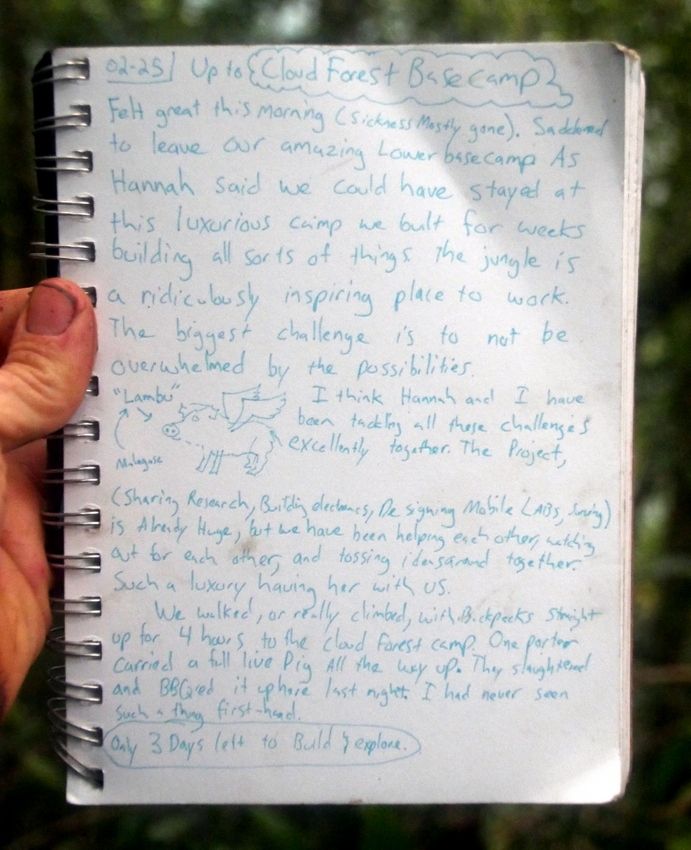 02-25 Up to Cloud Forest Basecamp
Felt great this morning (sickness Mostly gone). Saddened
to leave our amazing Lower basecamp As
Hannah said we could have stayed at
this luxurious camp we built for weeks
building all sorts of things The jungle is
a ridiculously inspiring place to work.
The biggest challenge is to not be
overwhelmed by the possibilities.
"Lambu"
Malagase
I think Hannah and I have
been tackling all these challenges
excellently together. The Project,
(Sharing Research, Building electronics, Designing Mobile LABs, Surviving)
is Already Huge, but we have been helping each other, watching
out for each other, and tossing ideas around together.
Such a luxury having her with us.
We walked, or really climbed, with Backpacks straight
up for 4 hours to the cloud forest camp. One porter
carried a full live Pig All the way up. They slaughtered
and BBQed it up here last night. I had never seen
such a thing first-hand.
Only 3 Days left to Build & explore.